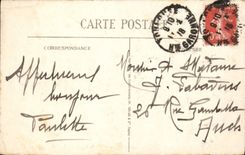 CARTE POSTALE
CORRESPONDANCE
Affectueux
bonjour
Paulette
Monsieur et Madame
J. Sabathier
28 Rue Gambetta
Auch
Hte GARONNE